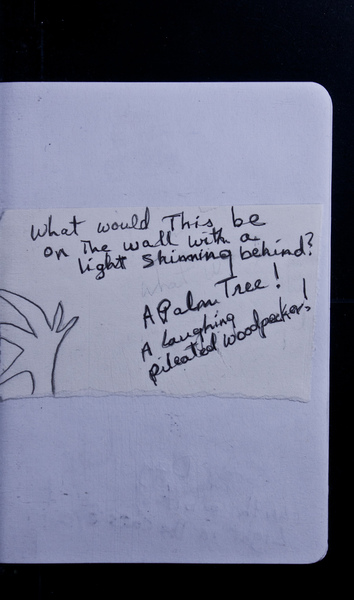 What would This be
on The wall with a
light shinning behind?
A Palm Tree!
A Laughing
pileated woodpecker!